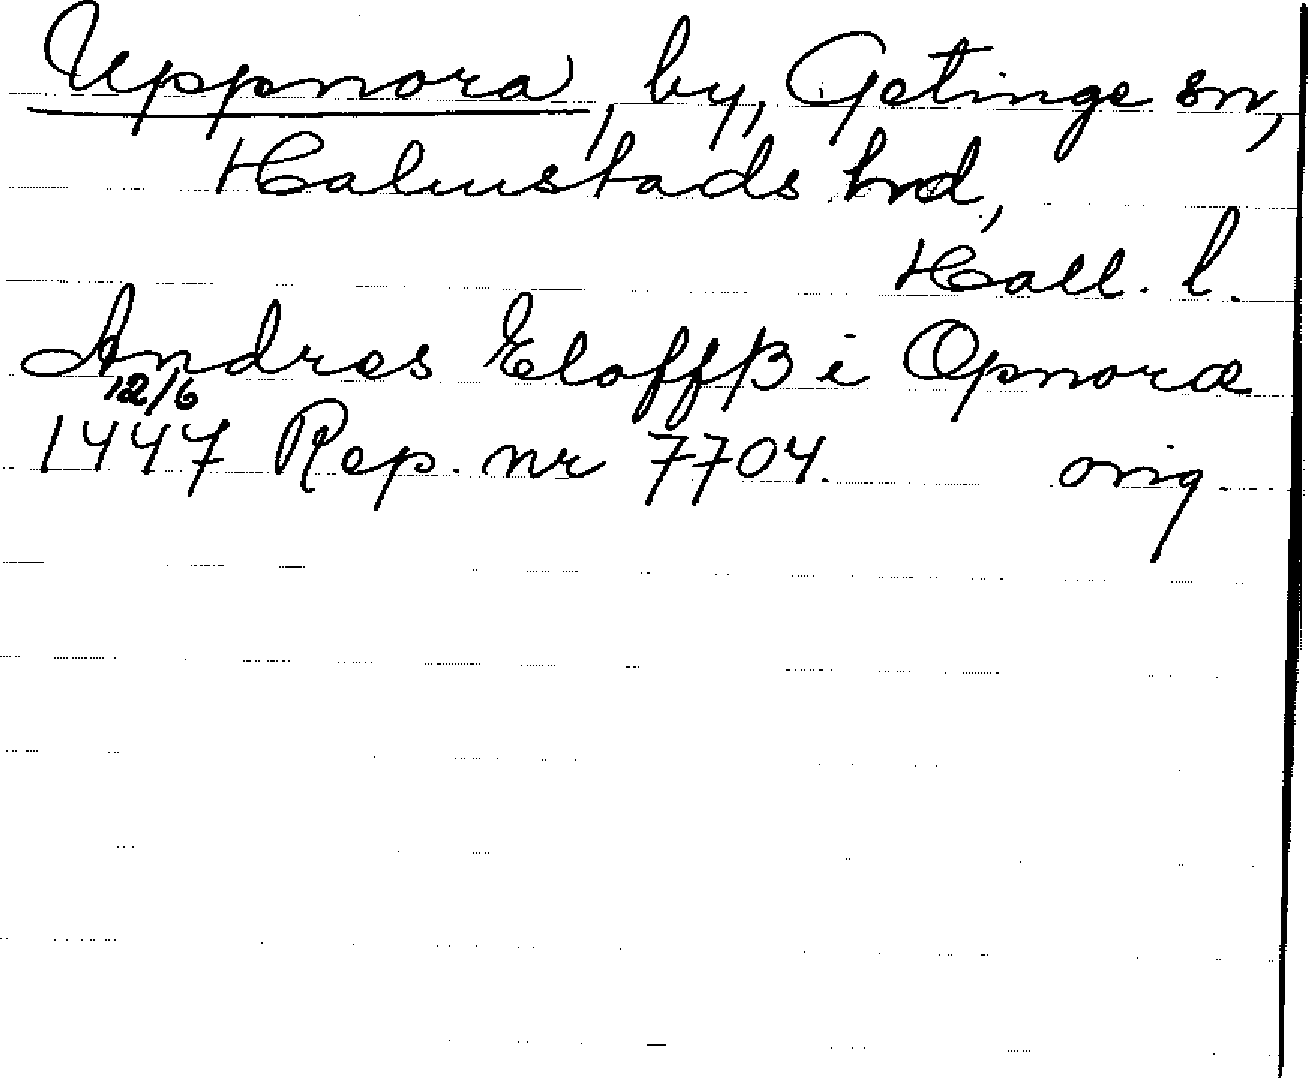 Uppnora, by, Getinge sn,
Halmstads hrd,
Hall. l.
Andres Eloffß i Opnoræ
12/6
1447 Rep. nr 7704. orig